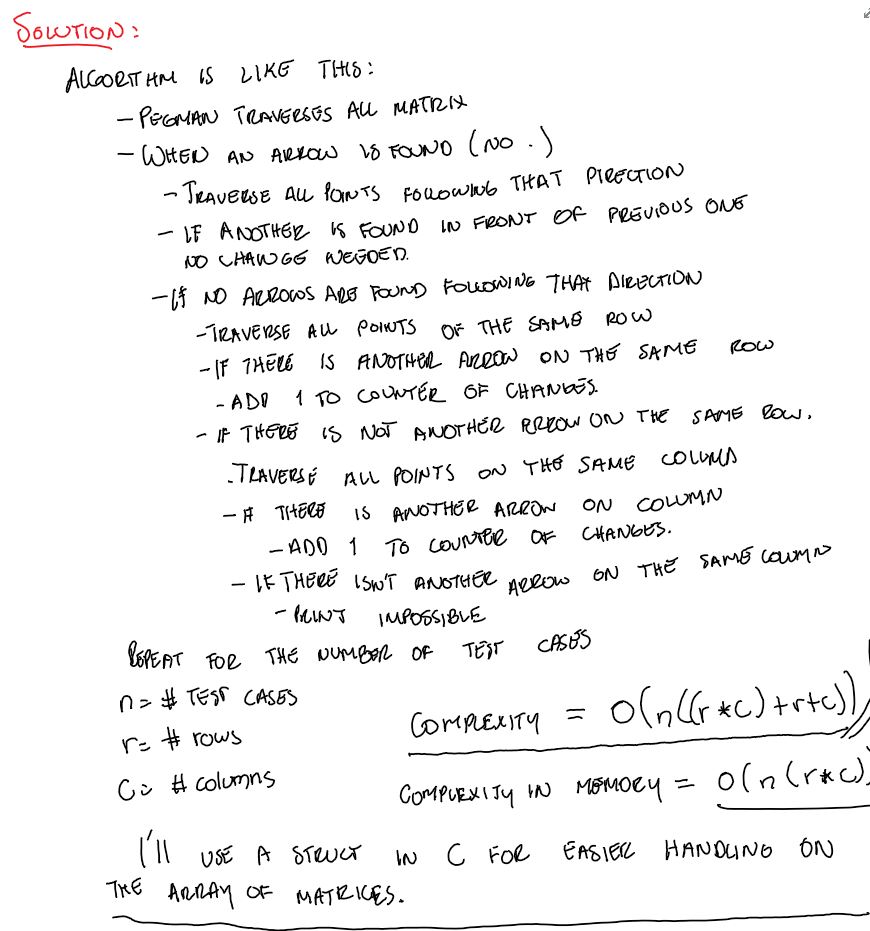 SOLUTION:
ALGORITHM IS LIKE THIS:
- PEGMAN TRAVERSES ALL MATRIX
- WHEN AN ARROW IS FOUND (NO .)
- TRAVERSE ALL POINTS FOLLOWING THAT DIRECTION
- IF ANOTHER IS FOUND IN FRONT OF PREVIOUS ONE
NO CHANGE NEEDED.
- If NO ARROWS ARE FOUND FOLLOWING THAT DIRECTION
- TRAVERSE ALL POINTS OF THE SAME ROW
- IF THERE IS ANOTHER ARROW ON THE SAME ROW
- ADD 1 TO COUNTER OF CHANGES.
- IF THERE IS NOT ANOTHER ARROW ON THE SAME ROW.
. TRAVERSE ALL POINTS ON THE SAME COLUMN
- IF THERE IS ANOTHER ARROW ON COLUMN
- ADD 1 TO COUNTER OF CHANGES.
- IF THERE ISN'T ANOTHER ARROW ON THE SAME COLUMN
- PRINT IMPOSSIBLE
REPEAT FOR THE NUMBER OF TEST CASES
n = # TEST CASES
r = # rows
C = # columns
COMPLEXITY = O(n((r*c)+r+c))
COMPLEXITY IN MEMORY = O(n(r*c)
I'll USE A STRUCT IN C FOR EASIER HANDLING ON
THE ARRAY OF MATRICES.